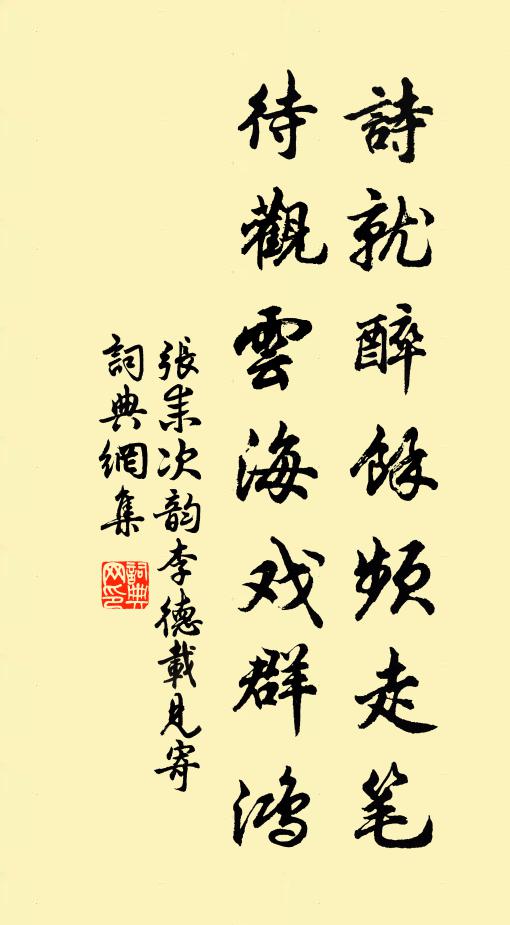 詩就醉餘頻走笔
待觀雲海戏群鴻
張耒次韵李德載見寄
詞典網集
詞典网印